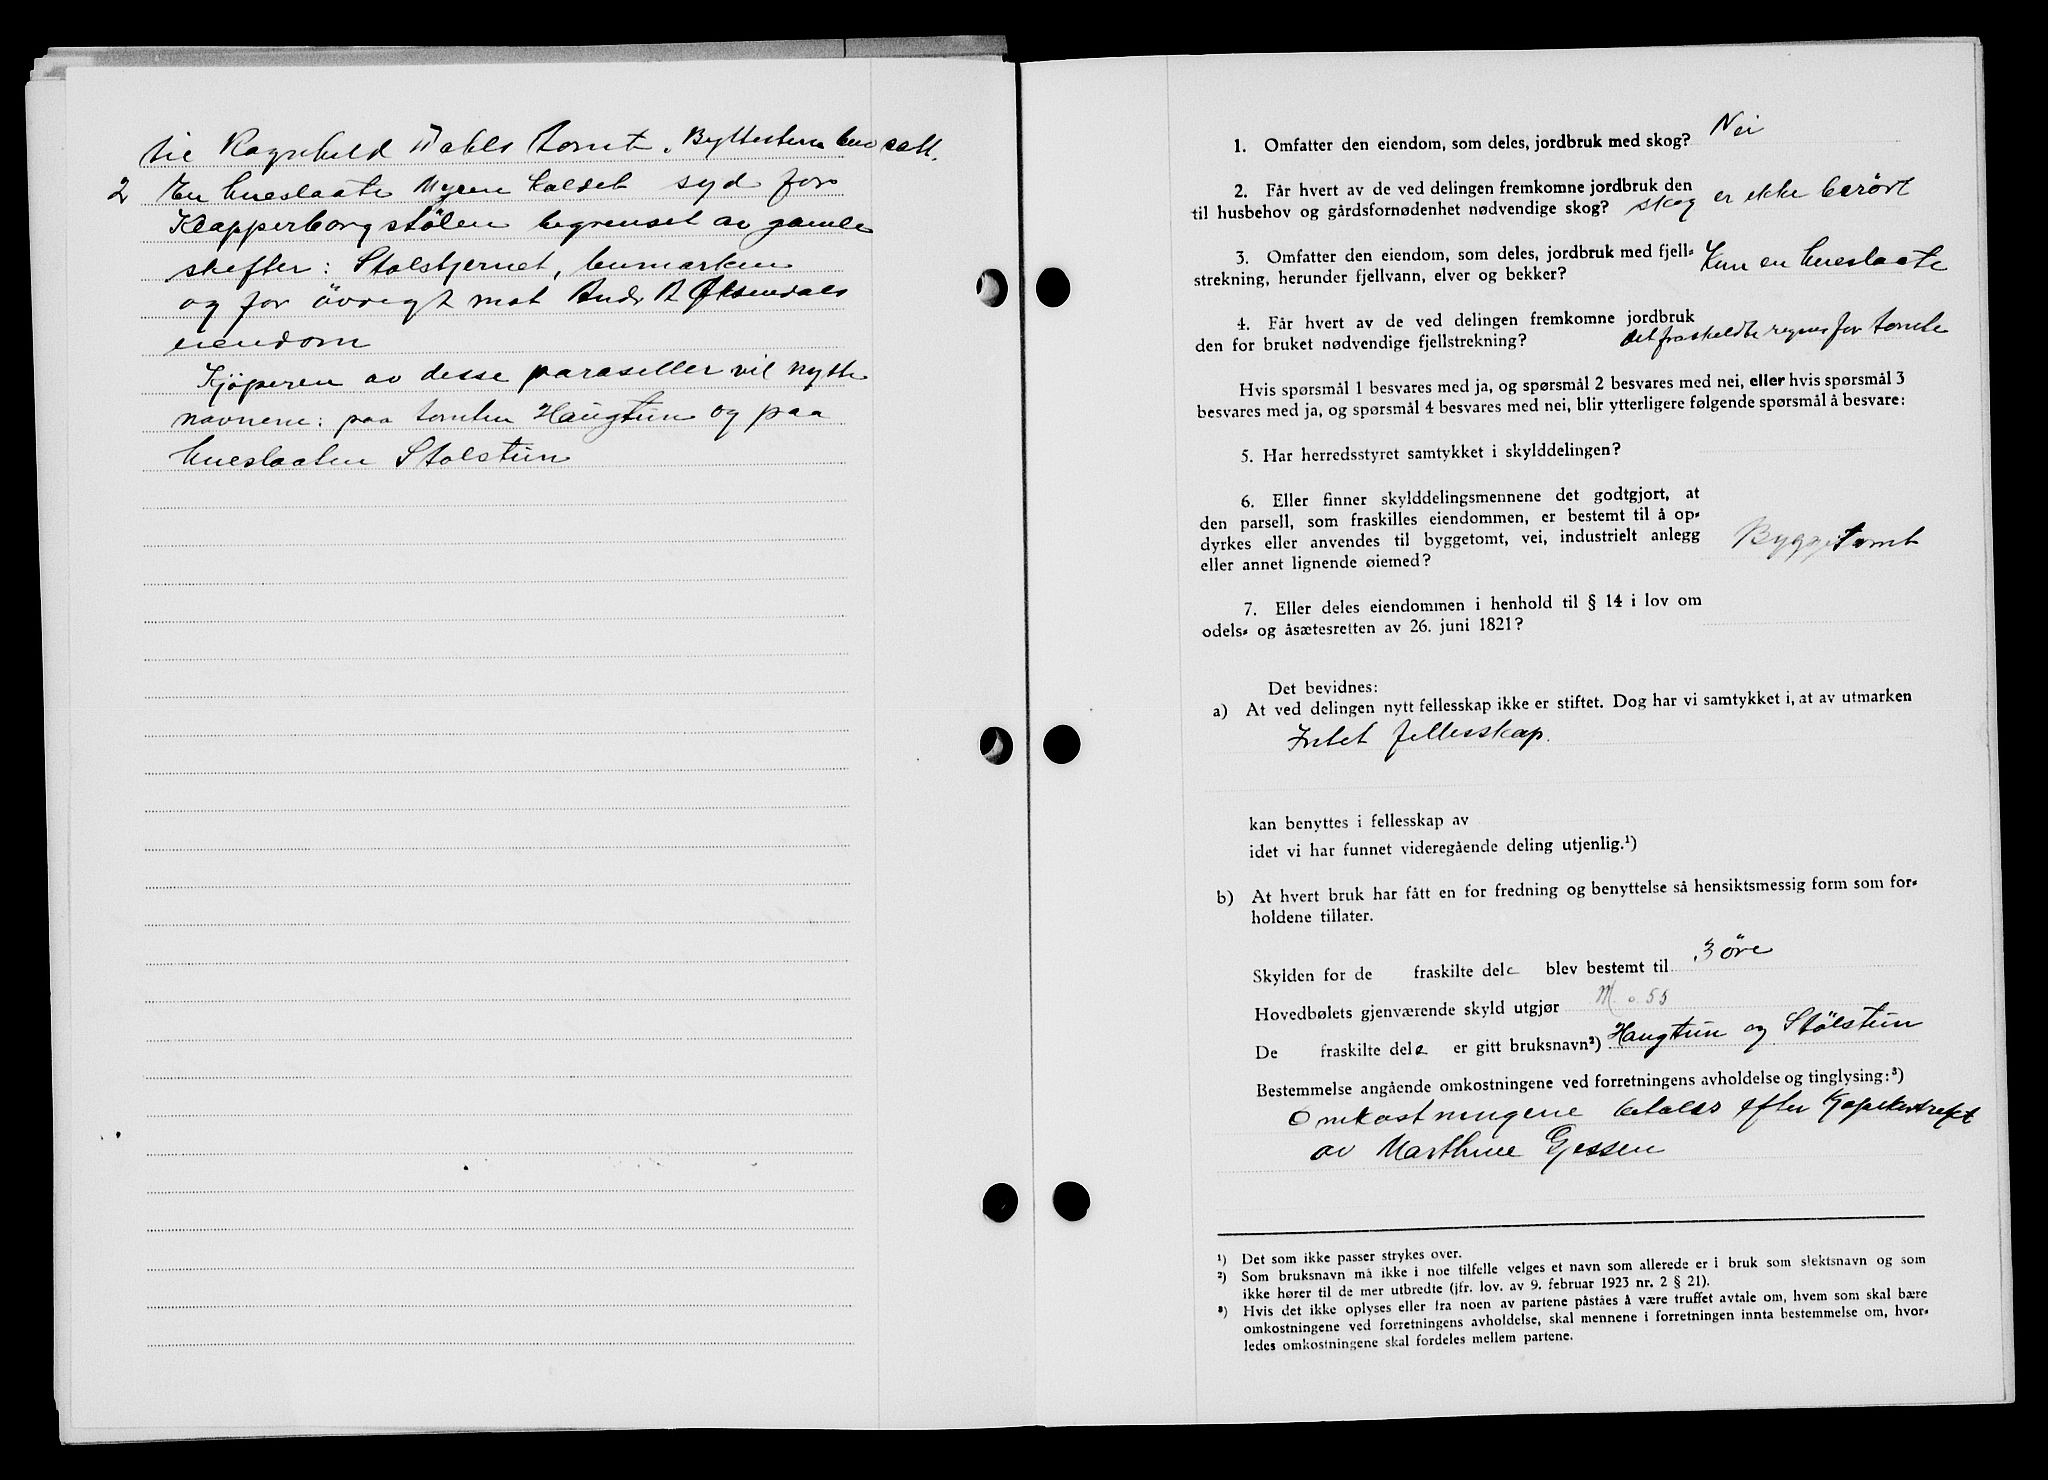 til Ragnhild Dahls tomt. Byttesten bev satt.
2 En uteslaate Myren kaldet syd for
Klapperborgstölen begrenset av gamle
skifter: Stølstjernet, bumarken
og for övrigt mot Andr A Øksendals
eiendom
Kjöperen av desse paraseller vil nytte
navnene: paa tomten Haugtun og paa
uteslaaten Stølstun
1. Omfatter den eiendom, som deles, jordbruk med skog? Nei
2. Får hvert av de ved delingen fremkomne jordbruk den
til husbehov og gårdsfornødenhet nødvendige skog? skog er ikke berört
3. Omfatter den eiendom, som deles, jordbruk med fjell-
strekning, herunder fjellvann, elver og bekker? Kun en uteslaate
4. Får hvert av de ved delingen fremkomne jordbruk
den for bruket nødvendige fjellstrekning? det fraskeldte regnes for tomte
Hvis spørsmål 1 besvares med ja, og spørsmål 2 besvares med nei, eller hvis spørsmål 3
besvares med ja, og spørsmål 4 besvares med nei, blir ytterligere følgende spørsmål å besvare:
5. Har herredsstyret samtykket i skylddelingen?
6. Eller finner skylddelingsmennene det godtgjort, at
den parsell, som fraskilles eiendommen, er bestemt til å op-
dyrkes eller anvendes til byggetomt, vei, industrielt anlegg
eller annet lignende øiemed? Byggetomt
7. Eller deles eiendommen i henhold til § 14 i lov om
odels- og åsætesretten av 26. juni 1821?
Det bevidnes:
a) At ved delingen nytt fellesskap ikke er stiftet. Dog har vi samtykket i, at av utmarken
Intet fellesskap.
kan benyttes i fellesskap av
idet vi har funnet videregående deling utjenlig.¹)
b) At hvert bruk har fått en for fredning og benyttelse så hensiktsmessig form som for-
holdene tillater.
Skylden for de fraskilte dele blev bestemt til 3 öre
Hovedbølets gjenværende skyld utgjør M. 0.55
De fraskilte dele er gitt bruksnavn²) Haugtun og Stölstun
Bestemmelse angående omkostningene ved forretningens avholdelse og tinglysing:³)
Omkostningene betales efter Kjøpekontrakt
av Marthine Gjessen
¹) Det som ikke passer strykes over.
²) Som bruksnavn må ikke i noe tilfelle velges et navn som allerede er i bruk som slektsnavn og som
ikke hører til de mer utbredte (jfr. lov. av 9. februar 1923 nr. 2 § 21).
³) Hvis det ikke oplyses eller fra noen av partene påståes å være truffet avtale om, hvem som skal bære
omkostningene ved forretningens avholdelse, skal mennene i forretningen innta bestemmelse om, hvor-
ledes omkostningene skal fordeles mellem partene.